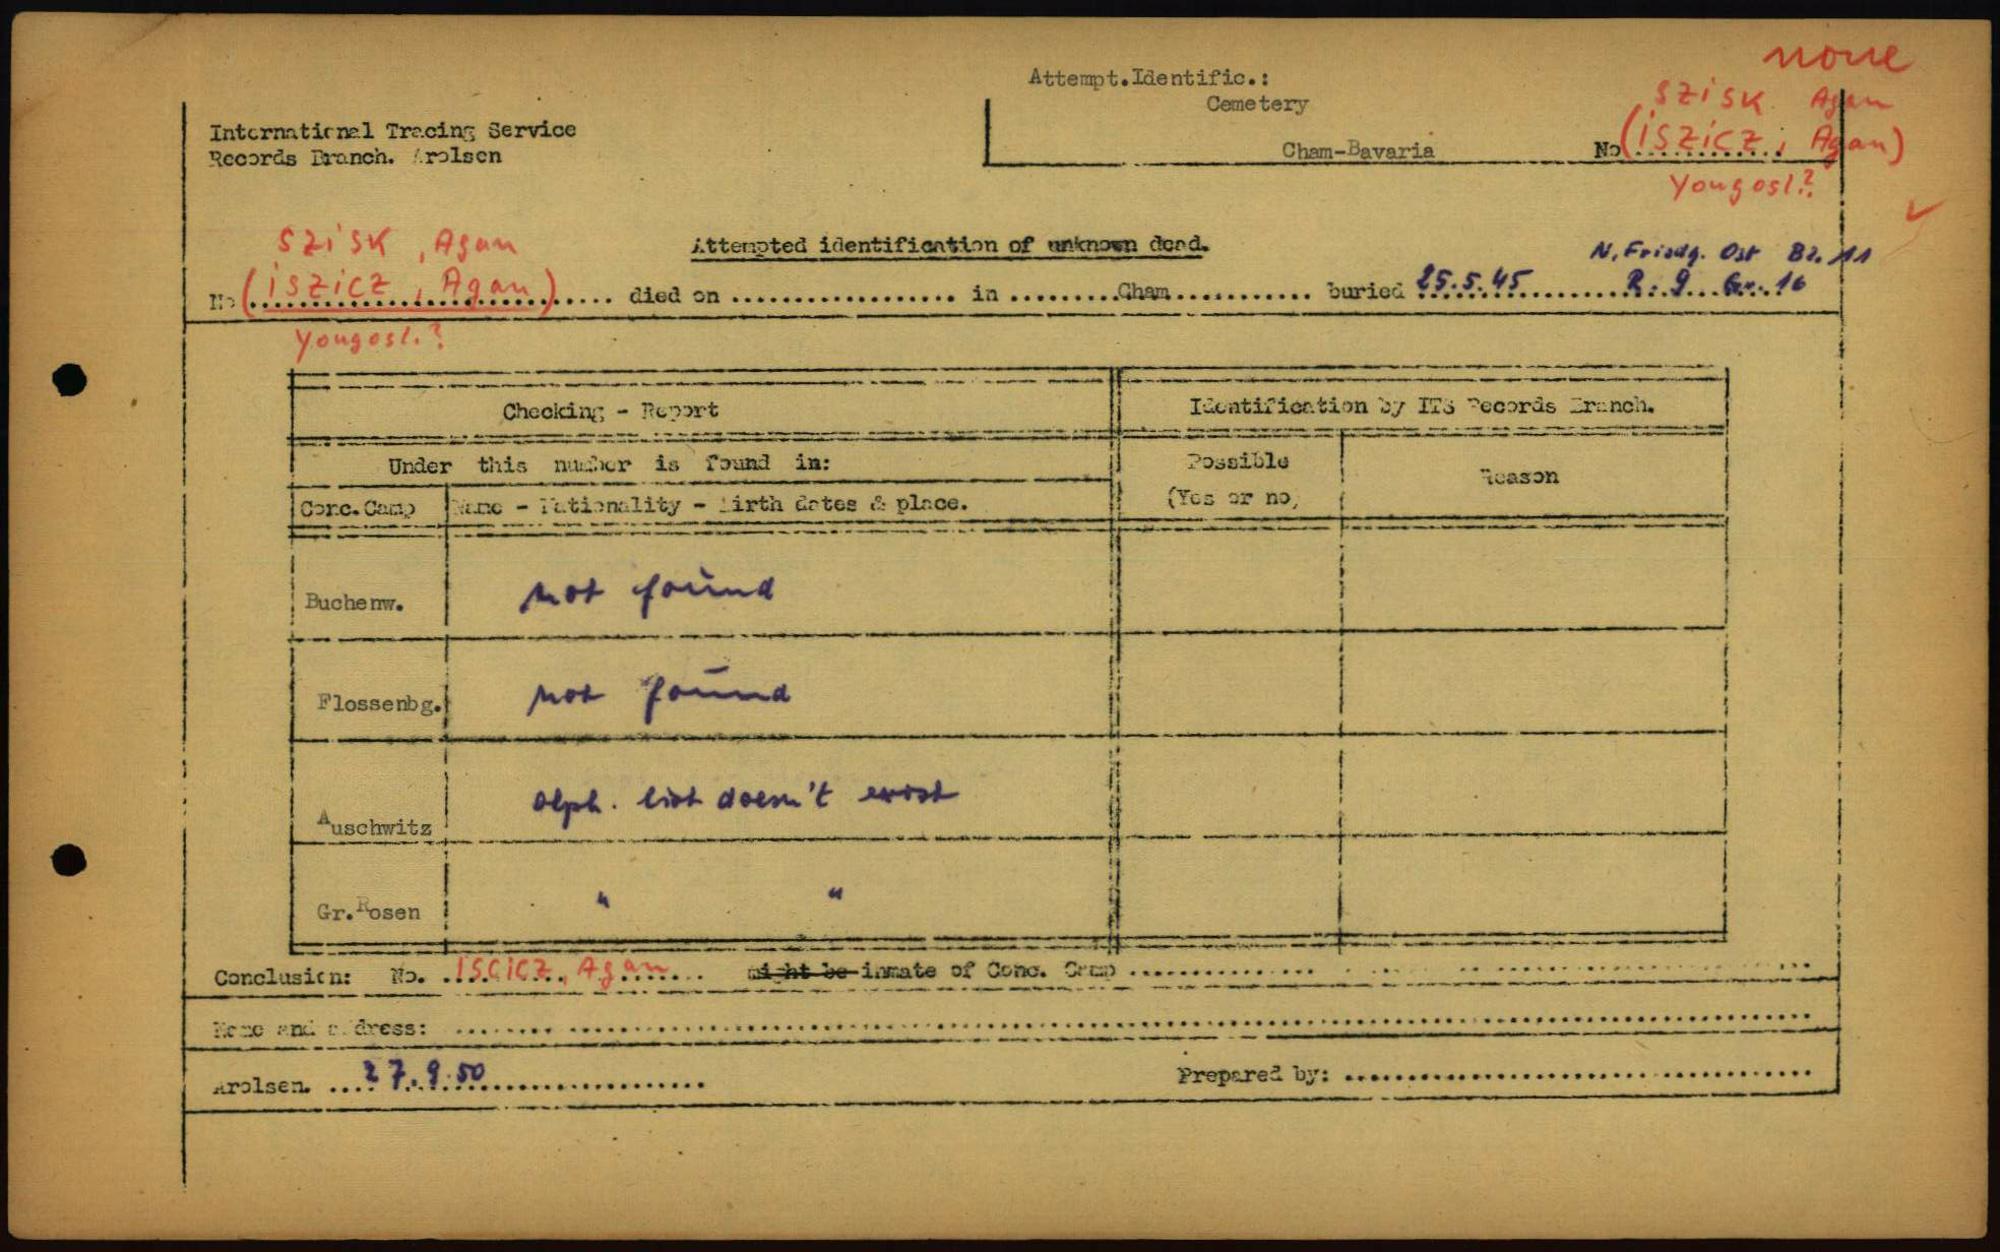 none
Attempt.Identific.:
Cemetery
SZiSK Agan
International Tracing Service
Records Branch. Arolsen
Cham-Bavaria No (iSZiCZ, Agan)
Yougosl.?
SZiSK, Agan
Attempted identification of unknown dead.
N. Friedg. Ost Bz. 11
No (iSZiCZ, Agan) died on in Cham buried 25.5.45 R. 9 Gr. 16
Yougosl.?
Checking - Report Identification by ITS Records Branch.
Under this number is found in: Possible Reason
Conc.Camp Name - Nationality - Birth dates & place. (Yes or no)
Buchenw. not found
Flossenbg. not found
Auschwitz alph. list doesn't exist
Gr.Rosen " "
Conclusion: No. ISCICZ, Agan might be inmate of Conc. Camp
Name and address:
Arolsen. 27.9.50 Prepared by: